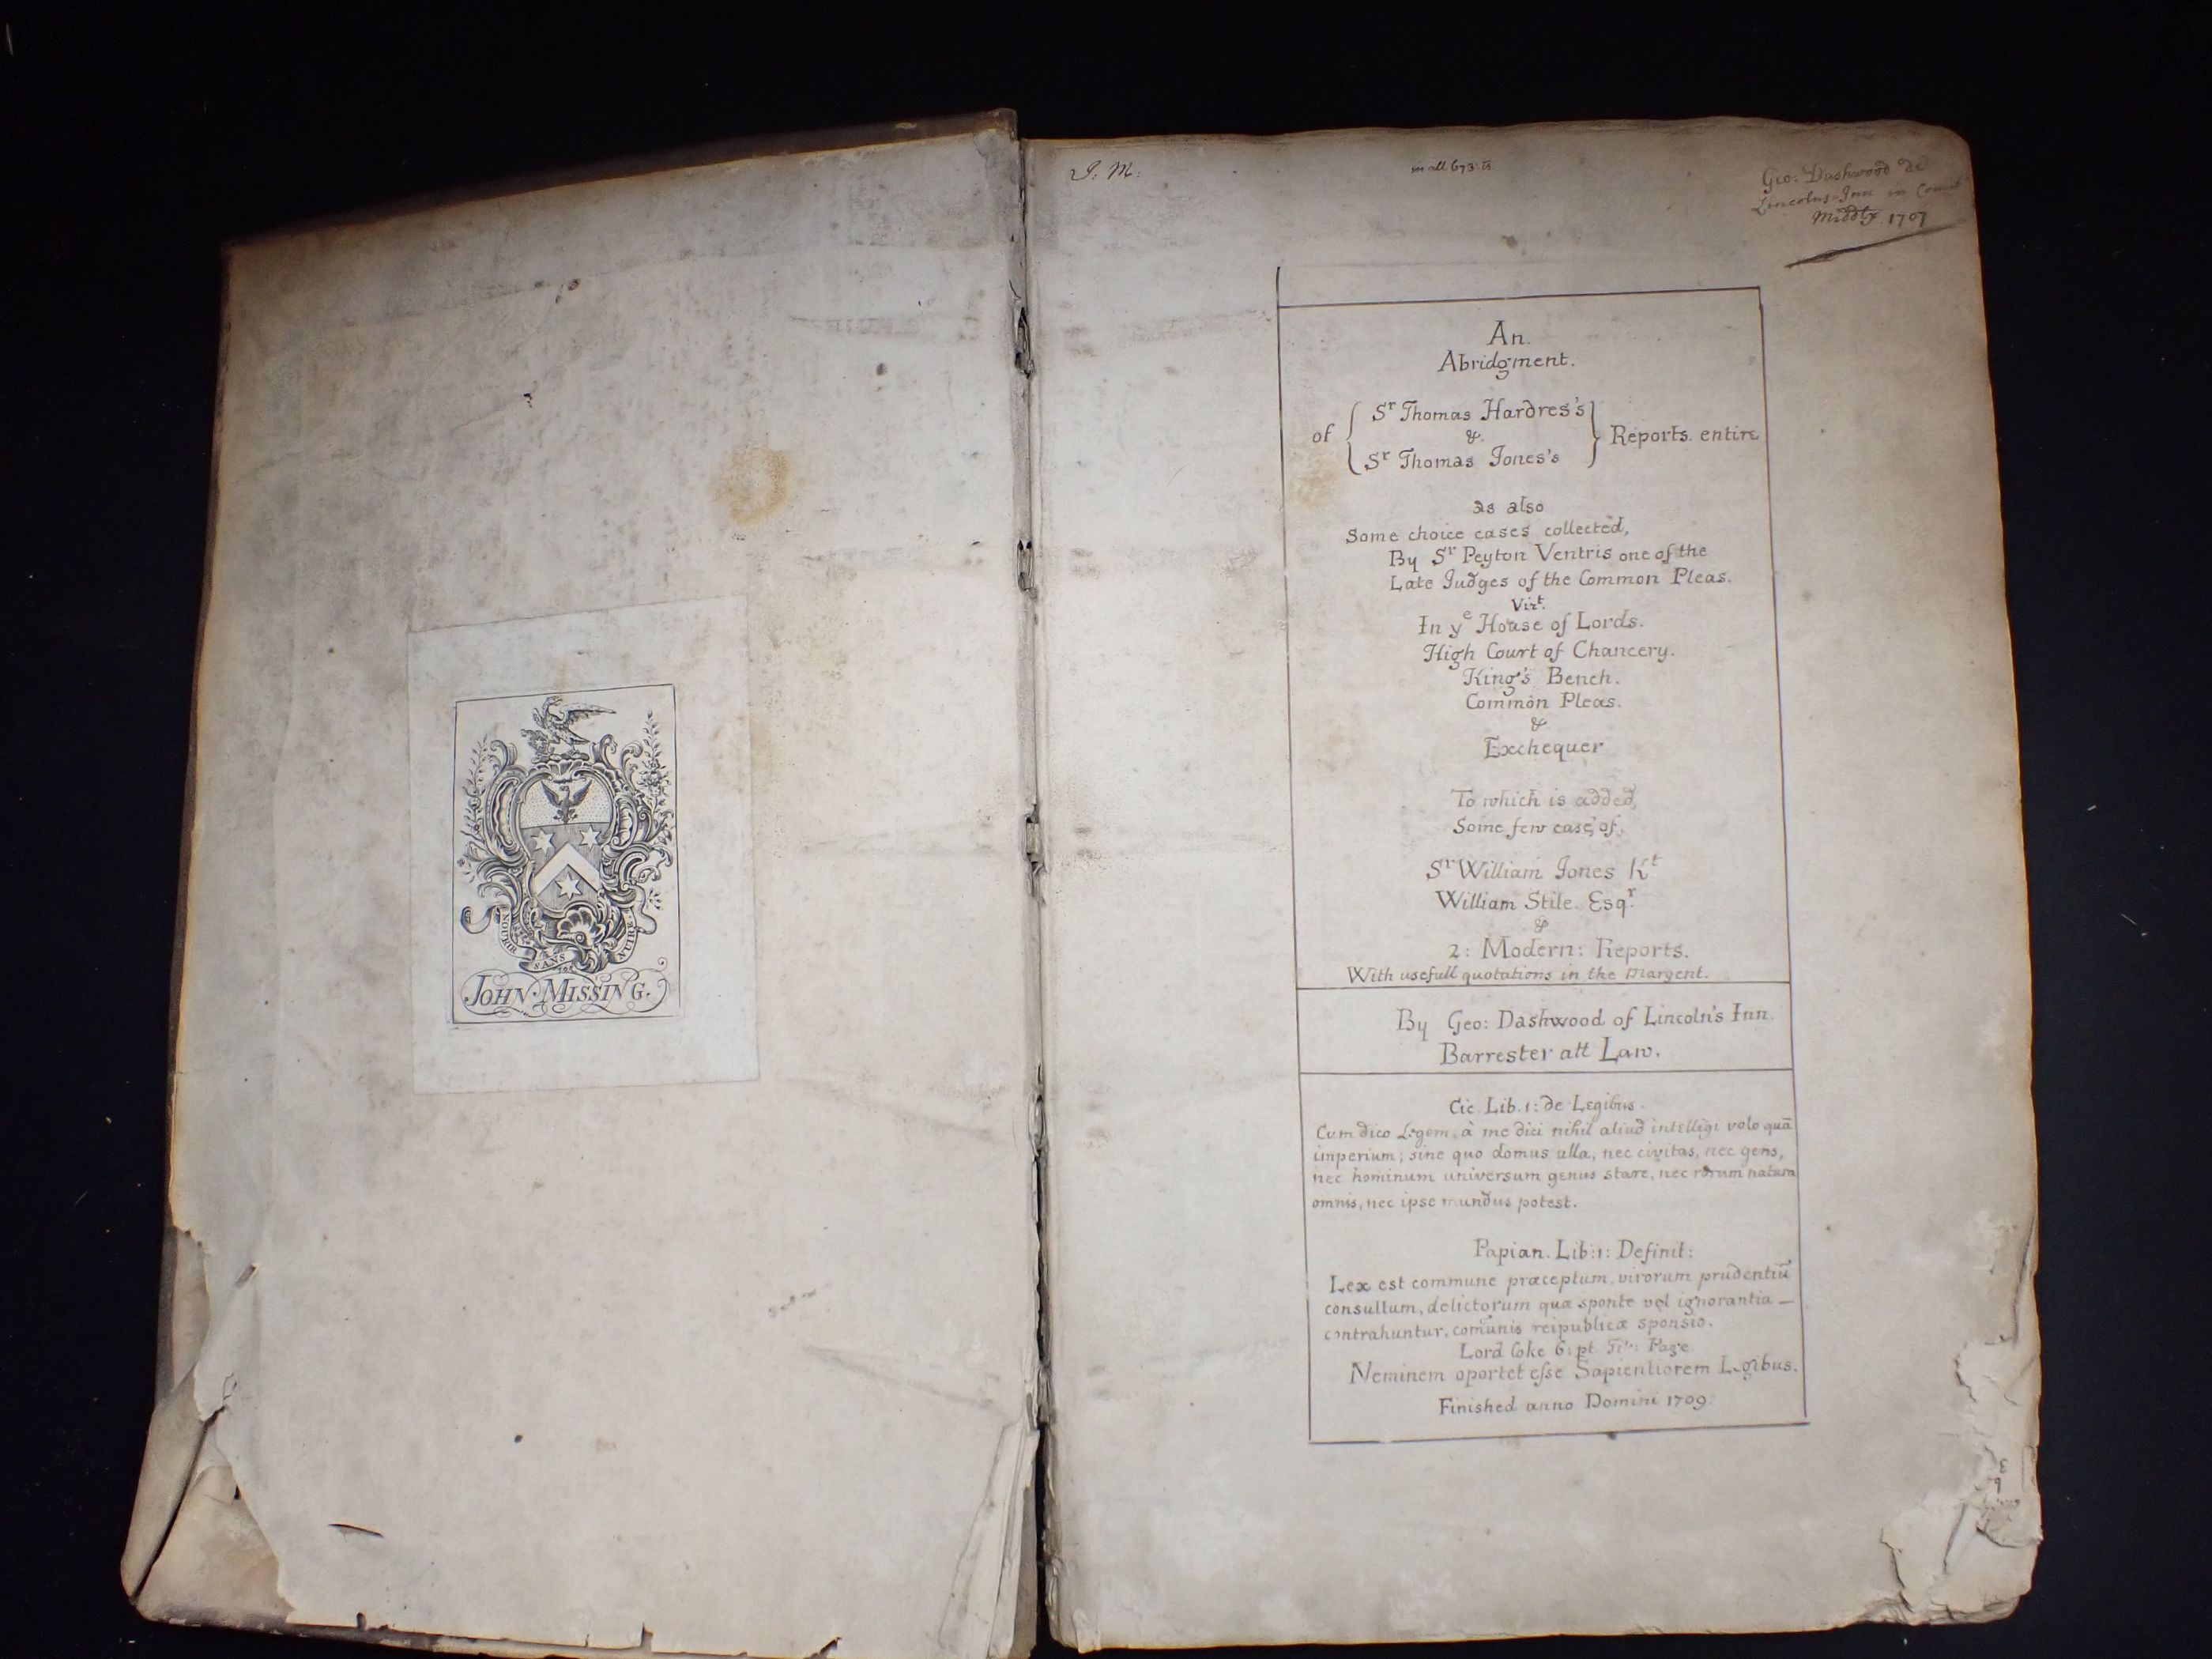 MOURIR SANS NUIRE
JOHN·MISSING.
J: M:
in all 673
Geo: Dashwood de
Lincolns-Inn in Comit
Middx 1707
An.
Abridgment.
of { Sr Thomas Hardres's
&
Sr Thomas Jones's } Reports. entire
as also
Some choice cases collected,
By Sr Peyton Ventris one of the
Late Judges of the Common Pleas.
Vizt.
In ye House of Lords.
High Court of Chancery.
King's Bench.
Common Pleas.
&
Exchequer
To which is added,
Some few cases of.
Sr William Jones Kt
William Stile. Esqr.
&
2: Modern: Reports.
With usefull quotations in the Margent.
By Geo: Dashwood of Lincoln's Inn.
Barrester att Law.
Cic. Lib. 1: de Legibus.
Cum dico Legem, à me dici nihil aliud intelligi volo quā
imperium; sine quo domus ulla, nec civitas, nec gens,
nec hominum universum genus stare, nec rerum natura
omnis, nec ipse mundus potest.
Papian. Lib: 1: Definit:
Lex est commune præceptum, virorum prudentiū
consultum, delictorum quæ sponte vel ignorantia —
contrahuntur, com̄unis reipublicæ sponsio.
Lord Coke 6: pt Page
Neminem oportet esse Sapientiorem Legibus.
Finished anno Domini 1709.